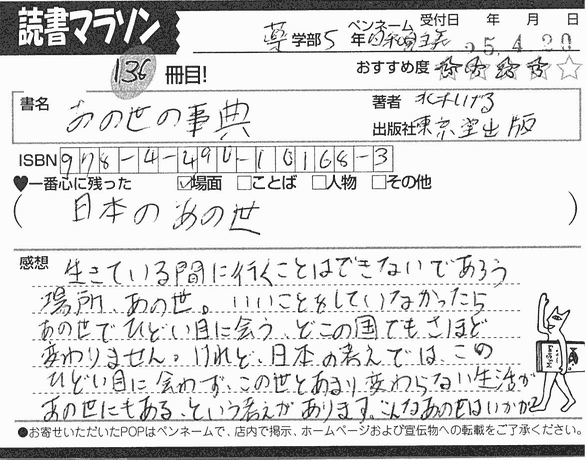 読書マラソン
ペンネーム 受付日 年 月 日
薬学部5年 25.4.20
136冊目! おすすめ度
書名 あの世の事典
著者 水木しげる
出版社 東京堂出版
ISBN 978-4-490-10168-3
♥一番心に残った ☑場面 □ことば □人物 □その他
(日本のあの世)
感想 生きている間に行くことはできないであろう
場所、あの世。いいことをしていなかったら
あの世でひどい目に会う、どこの国でもさほど
変わりません。けれど、日本の考えでは、この
ひどい目に会わず、この世とあまり変わらない生活が
あの世にもある、という考えがあります。こんなあの世はいかが?
●お寄せいただいたPOPはペンネームで、店内で掲示、ホームページおよび宣伝物への転載をご了承ください。